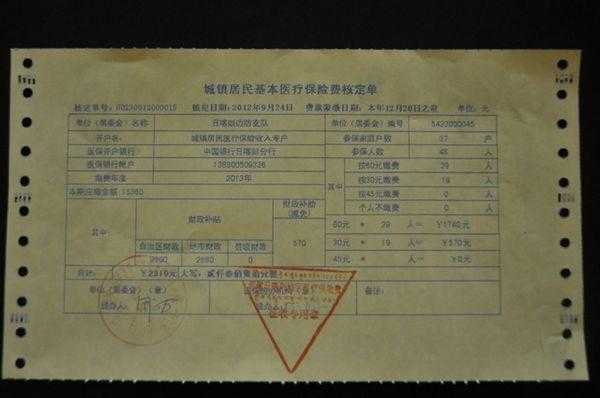 城镇居民基本医疗保险费核定单
核定日期：2012年9月24日 费款缴缴日期：本年12月20日之前 单位：元
单位（居委会）名称 日喀则边防支队 单位（居委会）编号 5422000045
开户名 城镇居民医疗保险收入专户 参保家庭户数 37 户
医保开户银行 中国银行日喀则分行 参保人数 48 人
医保银行帐户 138800509326 其中 按60元缴费 29 人
缴费年度 2013年 按30元缴费 19 人
本期应缴金额 15360 按45元缴费 0 人
其中 财政补贴 财政补助（减免） 个人不缴费 0 人
自治区财政 地市财政 县级财政 570 60元 * 29 人= ¥1740元
2880 2880 0 30元 * 19 人= ¥570元
45元 * 人= ¥0元
合计： ¥2310元 大写：贰仟叁佰壹拾元整
单位（居委会）（章） 备注：
经办人：
征收专用章